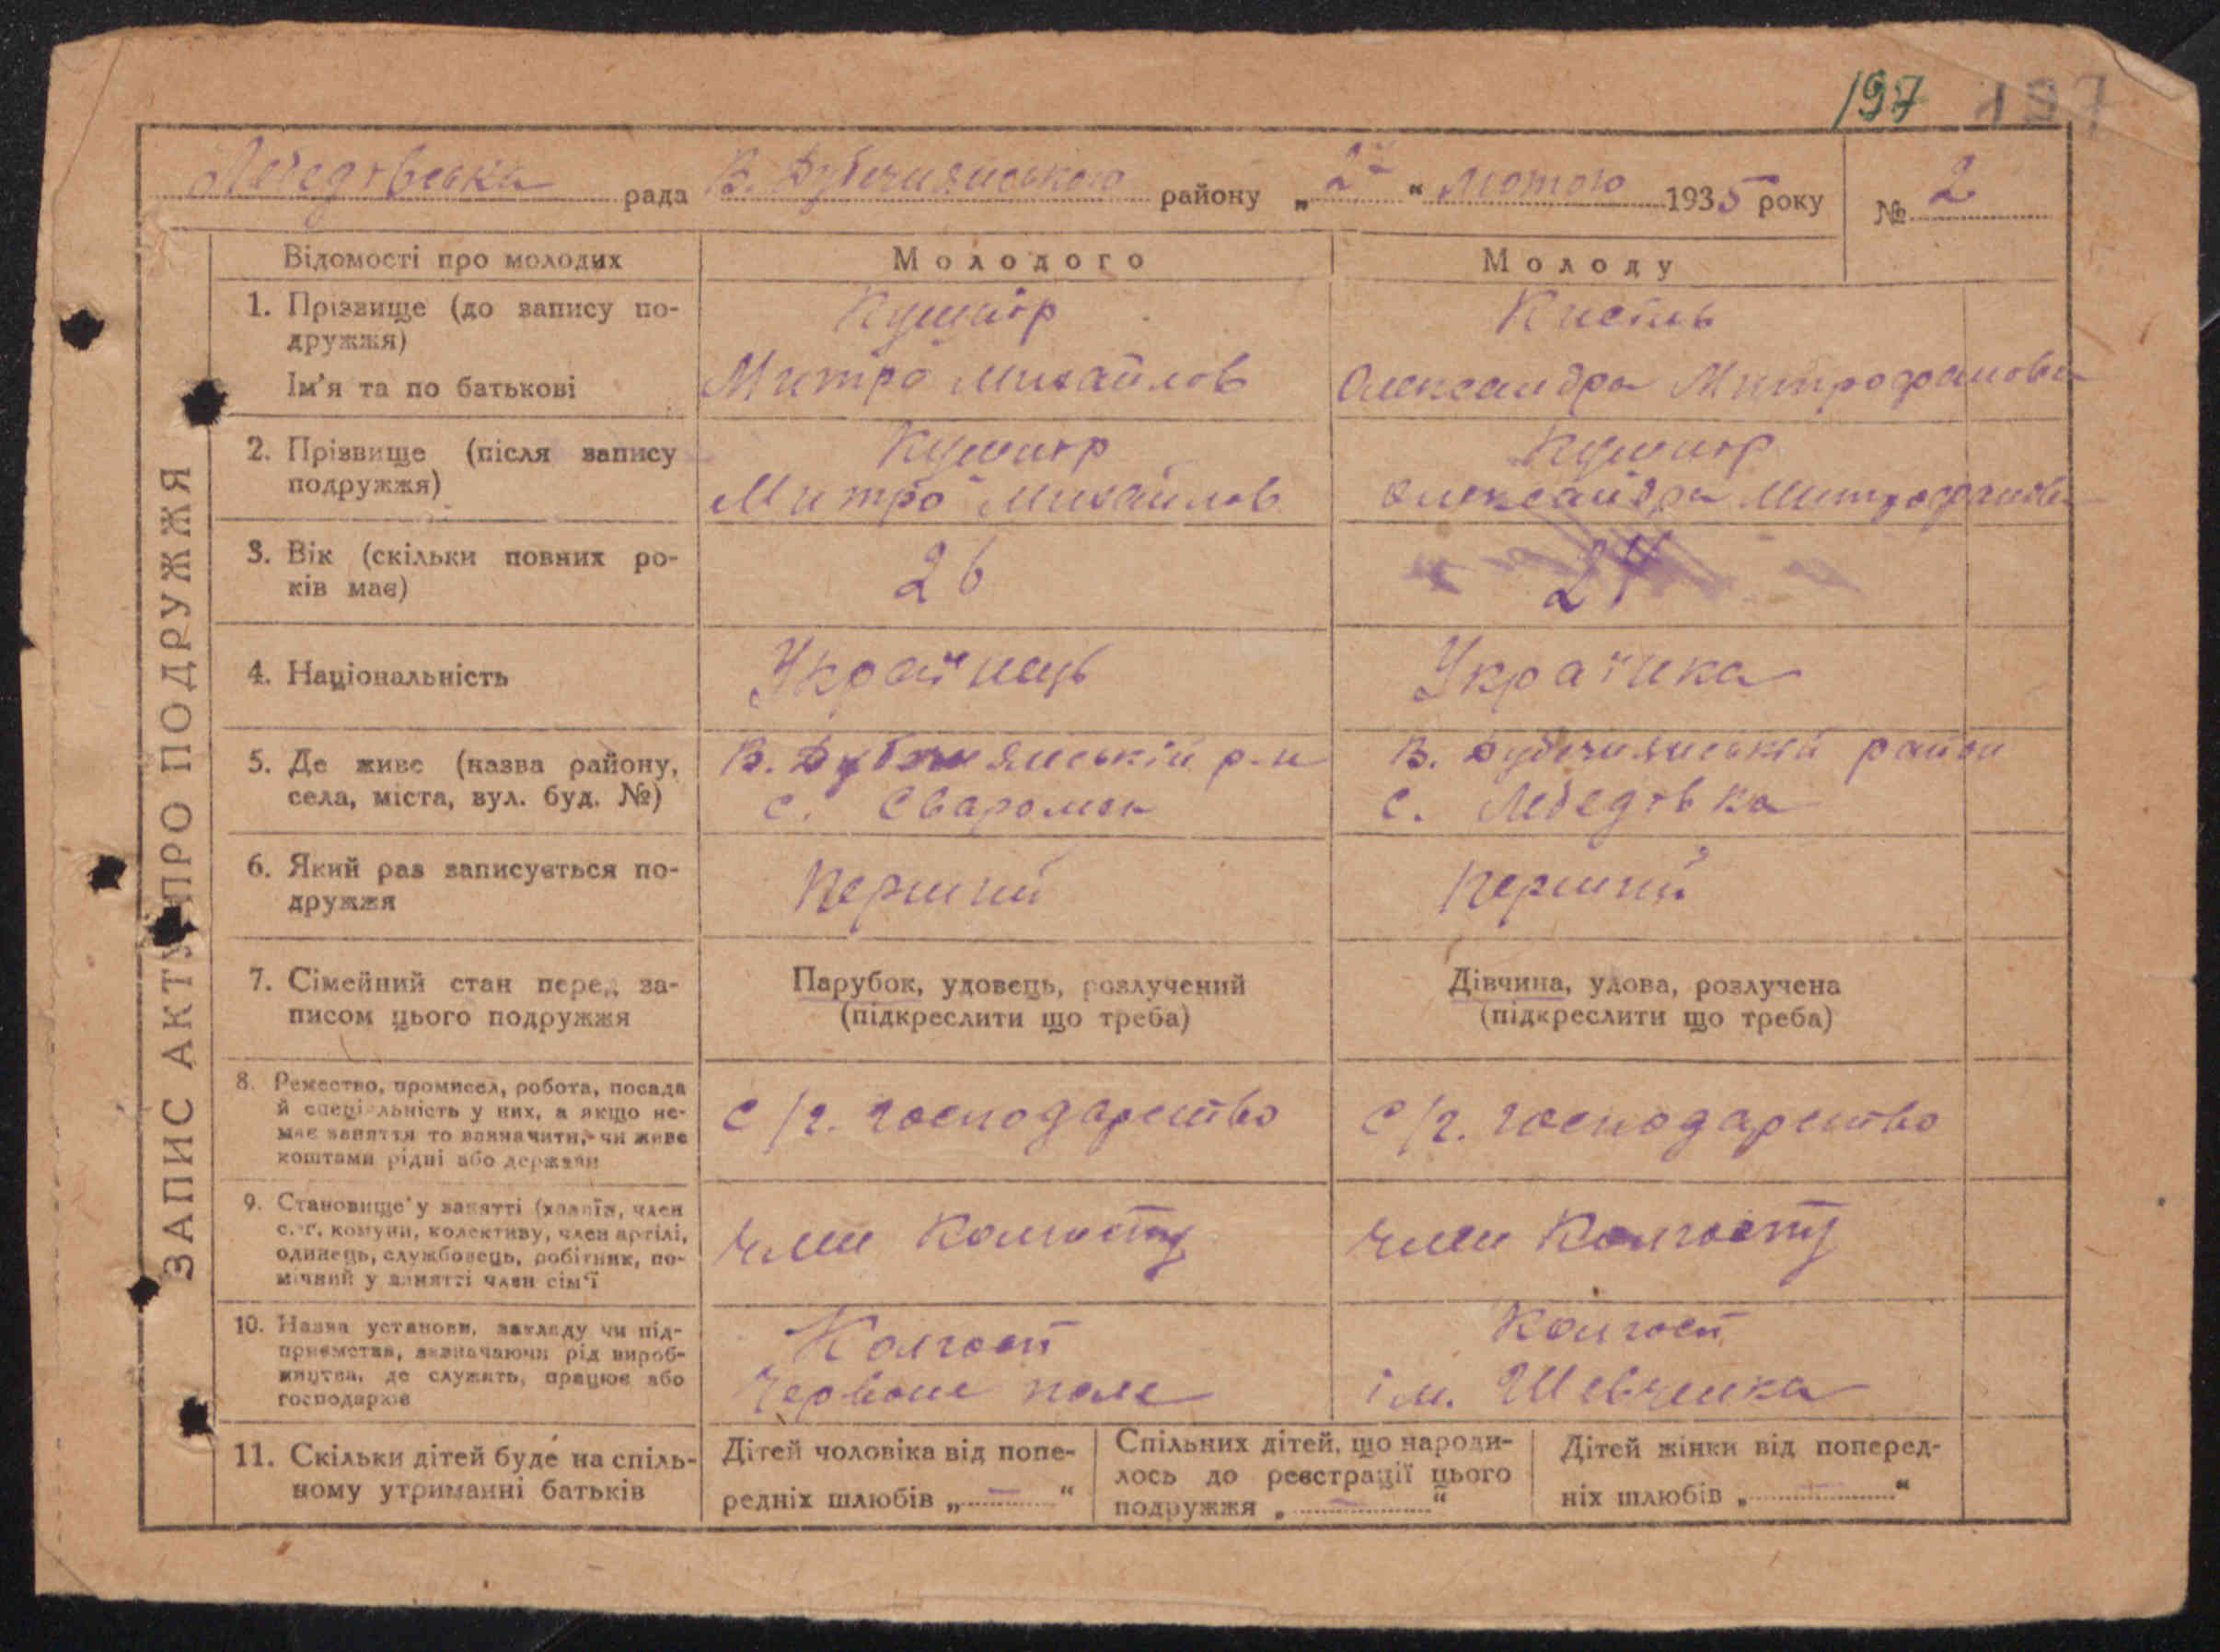 197 197
Лебедівська рада В. Дубечнянського району „2“ Лютого 1935 року № 2
Відомості про молодих Молодого Молоду
1. Прізвище (до запису по-
дружжя)
Кушнір Кисіль
Ім’я та по батькові Митро Михайлов Олександра Митрофанова
2. Прізвище (після запису
подружжя)
Кушнір Кушнір
Митро Михайлов Олександра Митрофанова
3. Вік (скільки повних ро-
ків має)
26 24
4. Національність Українець Українка
5. Де живе (назва району,
села, міста, вул. буд. №)
В. Дубечнянській р-н В. Дубечнянській район
с. Сваромля с. Лебедівка
6. Який раз записується по-
дружжя
Перший Перший
7. Сімейний стан перед за-
писом цього подружжя
Парубок, удовець, розлучений Дівчина, удова, розлучена
(підкреслити що треба) (підкреслити що треба)
8. Ремество, промисел, робота, посада
й спеціяльність у них, а якщо не-
має заняття то зазначити, чи живе
коштами рідні або держави
С/г. господарство С/г. господарство
9. Становище у занятті (хазяїн, член
с.-г. комуни, колективу, член артілі,
одинець, службовець, робітник, по-
мічний у занятті член сім’ї
член колгоспу член колгоспу
10. Назва установи, закладу чи під-
приємства, зазначаючи рід вироб-
ництва, де служить, працює або
господарює
Колгосп Колгосп
Червоне поле ім. Шевченка
11. Скільки дітей буде на спіль-
ному утриманні батьків
Дітей чоловіка від попе-
редніх шлюбів „ — “
Спільних дітей, що народи-
лось до реєстрації цього
подружжя „ — “
Дітей жінки від поперед-
ніх шлюбів „ — “
ЗАПИС АКТУ ПРО ПОДРУЖЖЯ